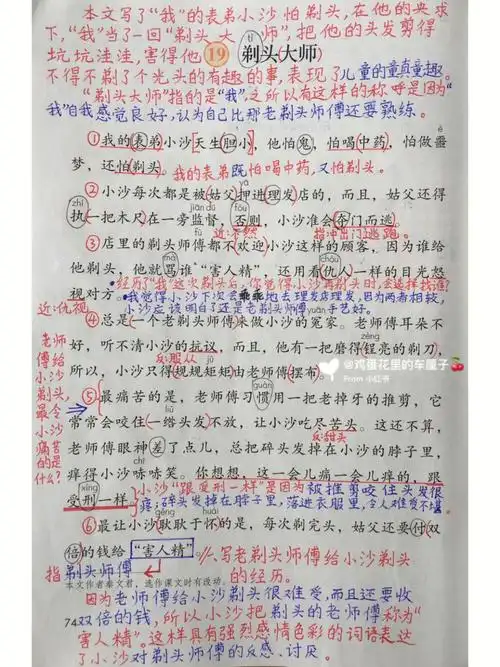 本文写了“我”的表弟小沙怕剃头,在他的央求
下,“我”当了一回“剃头大师”,把他的头发剪得
坑坑洼洼,害得他
19 剃头大师
tì
不得不剃了个光头的有趣的事,表现了儿童的童真童趣。
“剃头大师”指的是“我”,之所以有这样的称呼是因为“
我”自我感觉良好,认为自己比那老剃头师傅还要熟练。
①我的表弟小沙天生胆小,他怕鬼,怕喝中药,怕做噩
梦,还怕剃头。
我的表弟既怕喝中药,又怕剃头。
②小沙每次都是被姑父押进理发店的,而且,姑父还得
zhí jiān dū fǒu
执一把木尺在一旁监督,否则,小沙准会夺门而逃。
近:不然 指冲出门逃跑。
③店里的剃头师傅都不欢迎小沙这样的顾客,因为谁给
他剃头,他就骂谁“害人精”,还用看仇人一样的目光怒
经历了“我”这次剃头后,你觉得小沙再剃头时,会怎样找谁?
视对方。
我觉得小沙下次会乖乖地去理发店理发,因为两者相较,
小沙应该明白了还是老剃头师傅手艺好。
近:仇视
④总是一个老剃头师傅来做小沙的冤家。老师傅耳朵不
好,听不清小沙的抗议,而且,他有一把磨得锃亮的剃刀,
反:服从
所以,小沙只得规规矩矩由老师傅摆布。
@鸡蛋花里的车厘子
From 小红书
老师傅给小沙剃头,最令小沙痛苦的是什么?
guàn
⑤最痛苦的是,老师傅习惯用一把老掉牙的推剪,它
常常会咬住一绺头发不放,让小沙吃尽苦头。这还不算,
反:甜头
老师傅眼神差了点儿,总把碎头发掉在小沙的脖子里,
痒得小沙哧哧笑。你想想,这一会儿痛一会儿痒的,跟
xíng
受刑一样。
小沙“跟受刑一样”是因为被推剪咬住头发很
疼;碎头发掉在脖子里,落进衣服里,令人难受不堪。
gěng huái
⑥最让小沙耿耿于怀的是,每次剃完头,姑父还要付双
倍的钱给“害人精”。
指剃头师傅
写老剃头师傅给小沙剃头
的经历。
本文作者秦文君,选作课文时有改动。
因为老师傅给小沙剃头很难受,而且还要收
74
双倍的钱,所以小沙把剃头的老师傅称为“
害人精”。这样具有强烈感情色彩的词语表达
了小沙对剃头师傅的反感、讨厌。